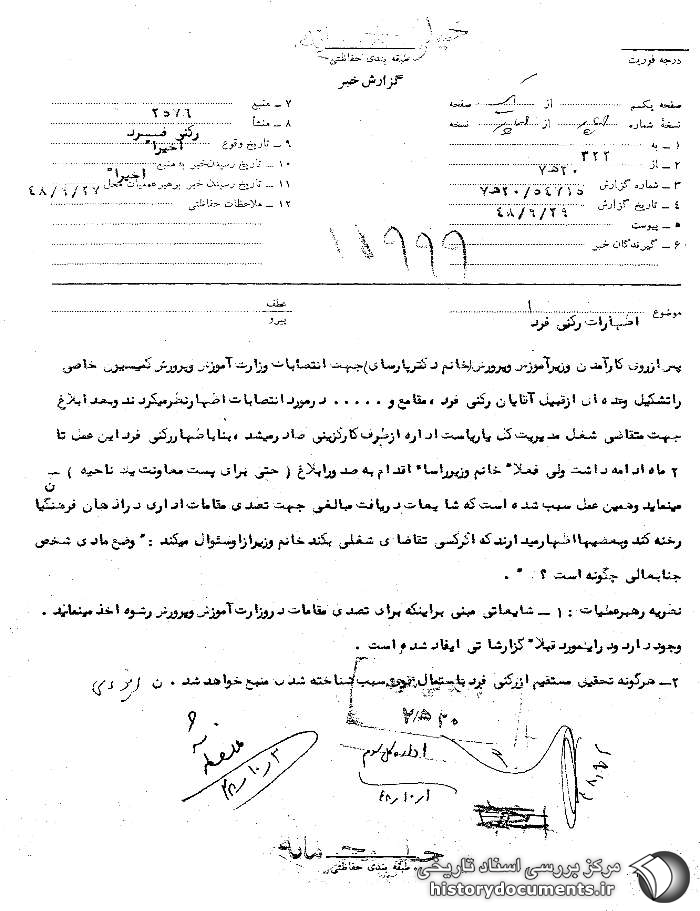 خیلی محرمانه
درجه فوریت
طبقه بندی حفاظتی
گزارش خبر
صفحه یکم از یک صفحه
نسخهٔ شماره از نسخه
۱ ـ به ۳۲۲
۲ ـ از ۲۰ه۷
۳ ـ شماره گزارش ۲۰ه۷/۵۴۷۱۵
۴ ـ تاریخ گزارش ۴۸/۹/۲۹
۵ ـ پیوست
۶ ـ گیرندگان خبر
۷ ـ منبع ۲۵۷۶
۸ ـ منشأ رکنی فرد
۹ ـ تاریخ وقوع اخیرا"
۱۰ ـ تاریخ رسیدن خبر به منبع اخیرا"
۱۱ ـ تاریخ رسیدن خبر برهبر عملیات محل ۴۸/۹/۲۷
۱۲ ـ ملاحظات حفاظتی
۱۱۹۹۹
موضوع اظهارات رکنی فرد
عطف
پیرو
پس ازروی کارآمدن وزیرآموزش وپرورش(خانم دکترپارسای)جهت انتصابات وزارت آموزش وپرورش کمیسیون خاصی
راتشکیل وعده ای ازقبیل آقایان رکنی فرد ، مقامع و ..... درمورد انتصابات اظهارنظرمیکردند وبعد ابلاغ
جهت متقاضی شغل مدیریت کل یاریاست اداره ازطرف کارگزینی صادرمیشد ، بنابا ظهاررکنی فرد این عمل تا
۲ ماه ادامه داشت ولی فعلا" خانم وزیرراسا" اقدام به صدورابلاغ ( حتی برای پست معاونت یک ناحیه )
مینماید وهمین عمل سبب شده است که شایعات دریافت مبالغی جهت تصدی مقامات اداری دراذهان فرهنگیان
رخنه کند وبعضیها اظهارمیدارند که اگرکسی تقاضای شغلی بکند خانم وزیرازاوسئوال میکند : " وضع مادی شخص
جنابعالی چگونه است ؟ " .
نظریه رهبرعملیات : ۱ ـ شایعاتی مبنی براینکه برای تصدی مقامات دروزارت آموزش وپرورش رشوه اخذ مینمایند .
وجود دارد ودراینمورد قبلا" گزارشاتی ایفاد شده است .
۲ـ هرگونه تحقیق مستقیم ازرکنی فرد باحتمال قوی سبب شناخته شدن منبع خواهد شد . ن
۲۰ه۷
اداره کل سوم
۴۸/۱۰/۱
ملاحظه
۴۸/۱۰/۳
خیلی محرمانه
طبقه بندی حفاظتی
مرکز بررسی اسناد تاریخی
historydocuments.ir